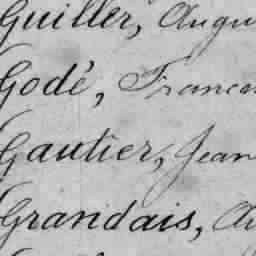 Guiller, Augu
Godé, Franço
Gautier, Jean
Grandais, Au